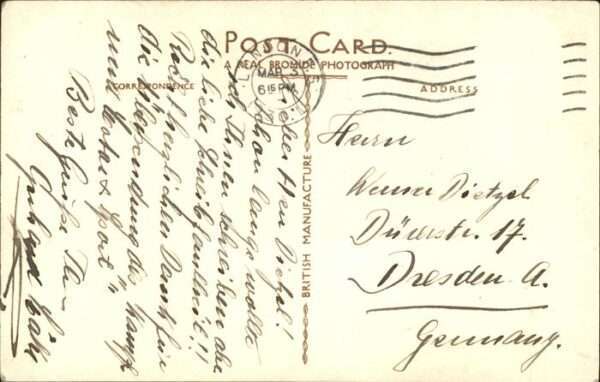 POST CARD.
A REAL BROMIDE PHOTOGRAPH
CORRESPONDENCE
ADDRESS
BRITISH MANUFACTURE
LONDON
MAR 5
6 15 PM
Lieber Herr Dietzel!
Schon lange wollte
ich Ihnen schreiben aber
die liebe Schreibfaulheit!!
Recht herzlichen Dank für
die Übersendung des
und Motor & Sport"
Beste Grüße Ihr
Gerhard
Herrn
Werner Dietzel
Dürerstr. 17.
Dresden A.
Germany.